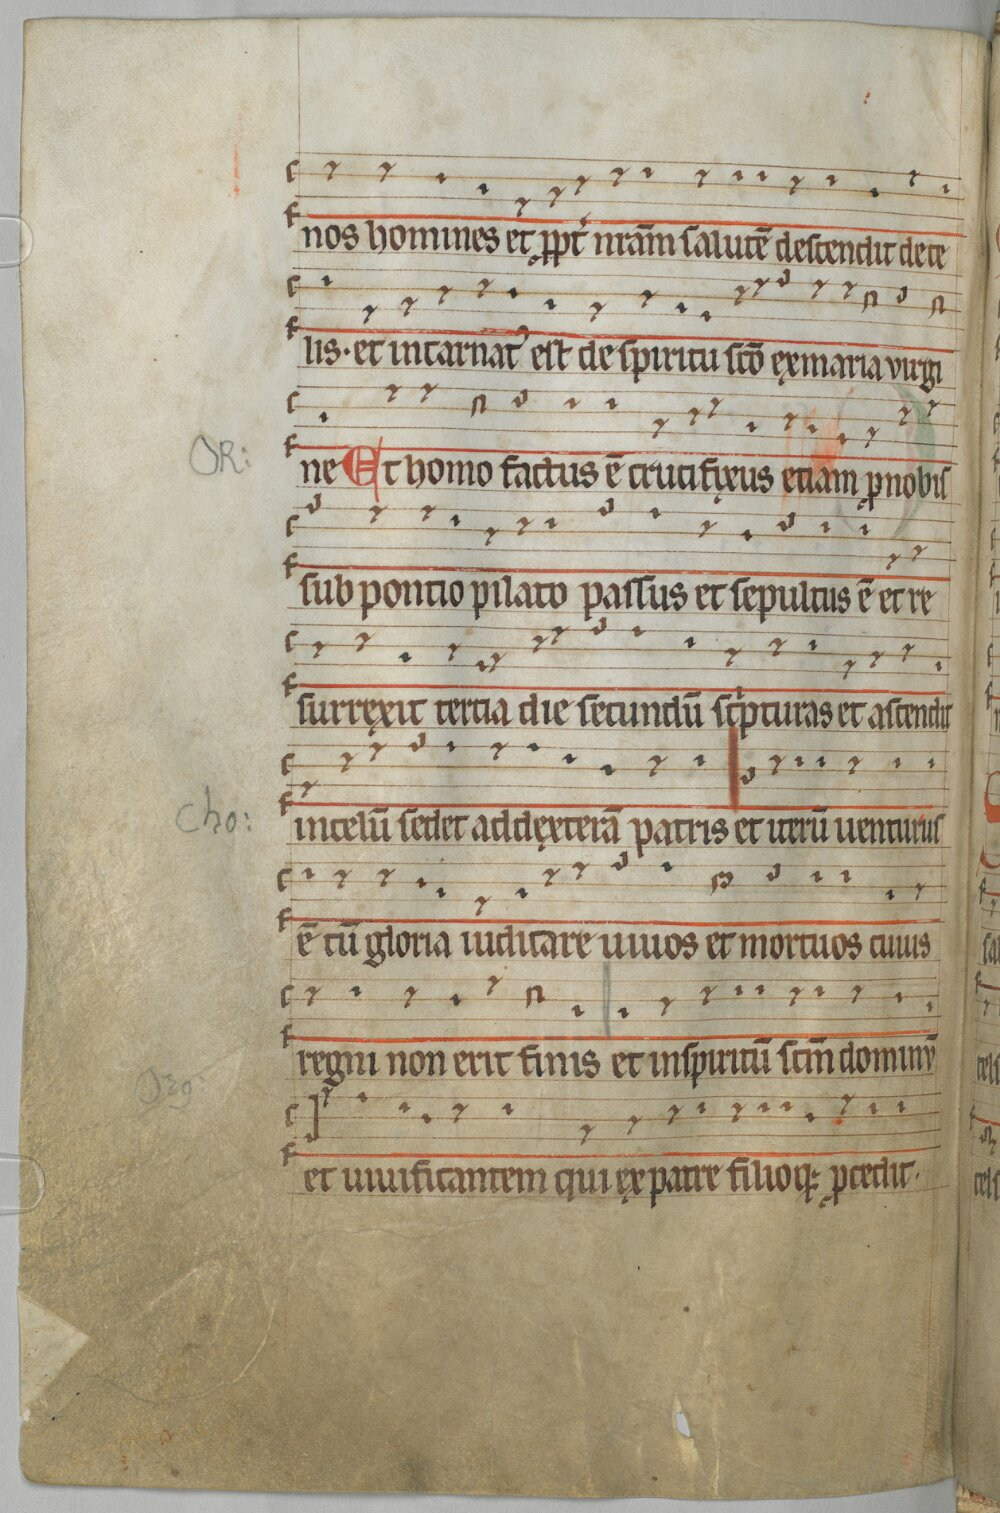 nos homines et ꝓpt̾ nr̄am̄ salutē descendit de ce
lis · et incarnatꝰ est de spiritu sc̄o ex maria virgi
OR:
ne Et homo factus ē crucifixus etiam ꝓ nobis
sub pontio pilato passus et sepultus ē et re
surrexit tertia die secundū sc̍pturas et ascendit
Cho:
in celū sedet ad dexterā patris et iterū uenturus
ē cū gloria iudicare uiuos et mortuos cuius
regni non erit finis et in spiritū sc̄m dominū
Org:
et uiuificantem qui ex patre filioqꝫ ꝓcedit ·